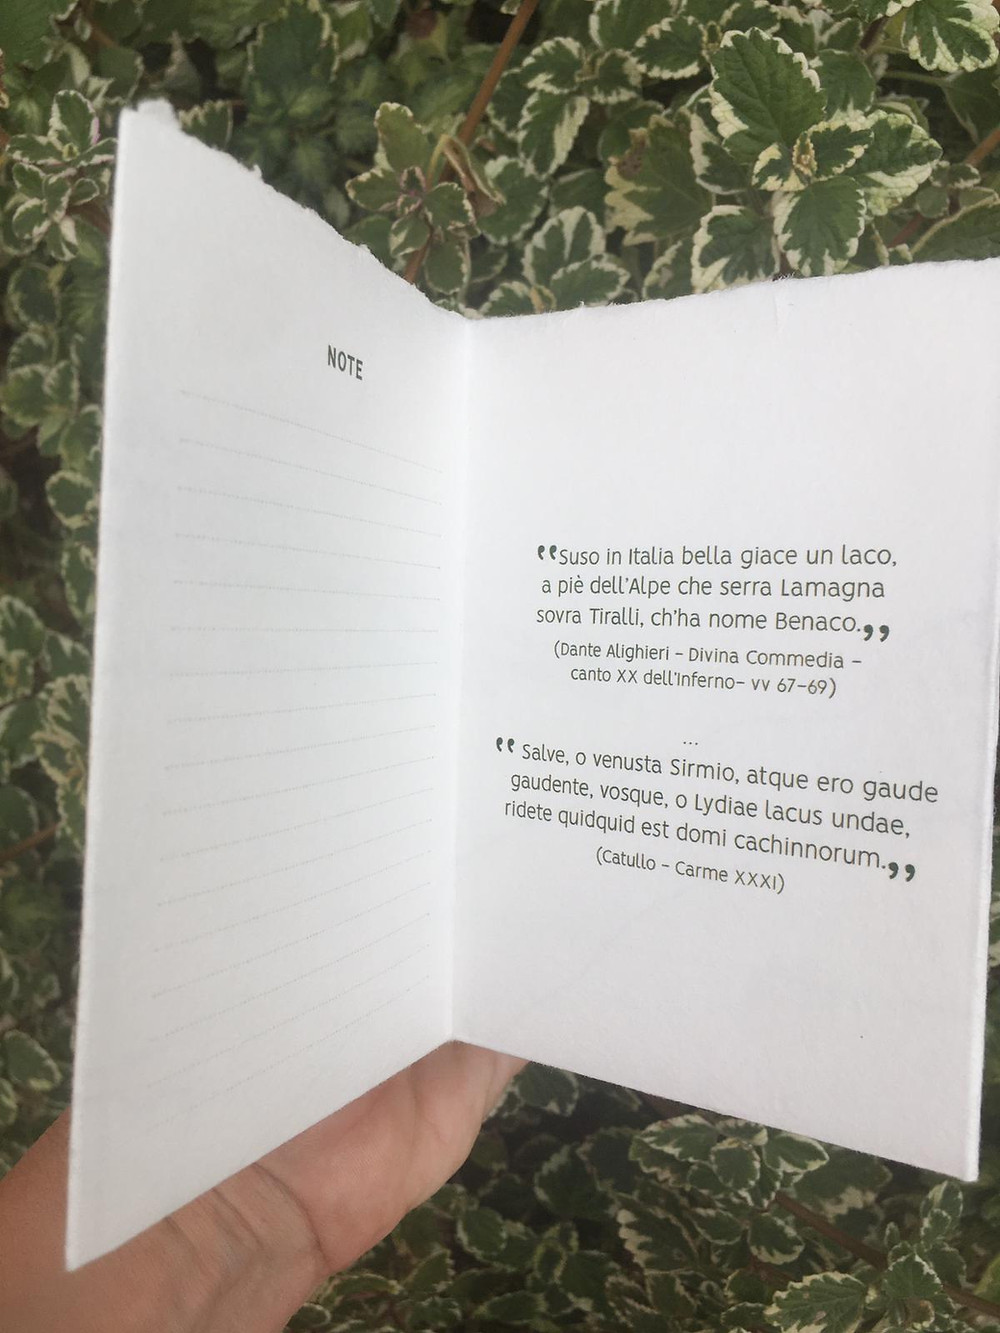 NOTE
“Suso in Italia bella giace un laco,
a piè dell'Alpe che serra Lamagna
sovra Tiralli, ch'ha nome Benaco.”
(Dante Alighieri – Divina Commedia –
canto XX dell'Inferno– vv 67–69)
...
“ Salve, o venusta Sirmio, atque ero gaude
gaudente, vosque, o Lydiae lacus undae,
ridete quidquid est domi cachinnorum.”
(Catullo – Carme XXXI)